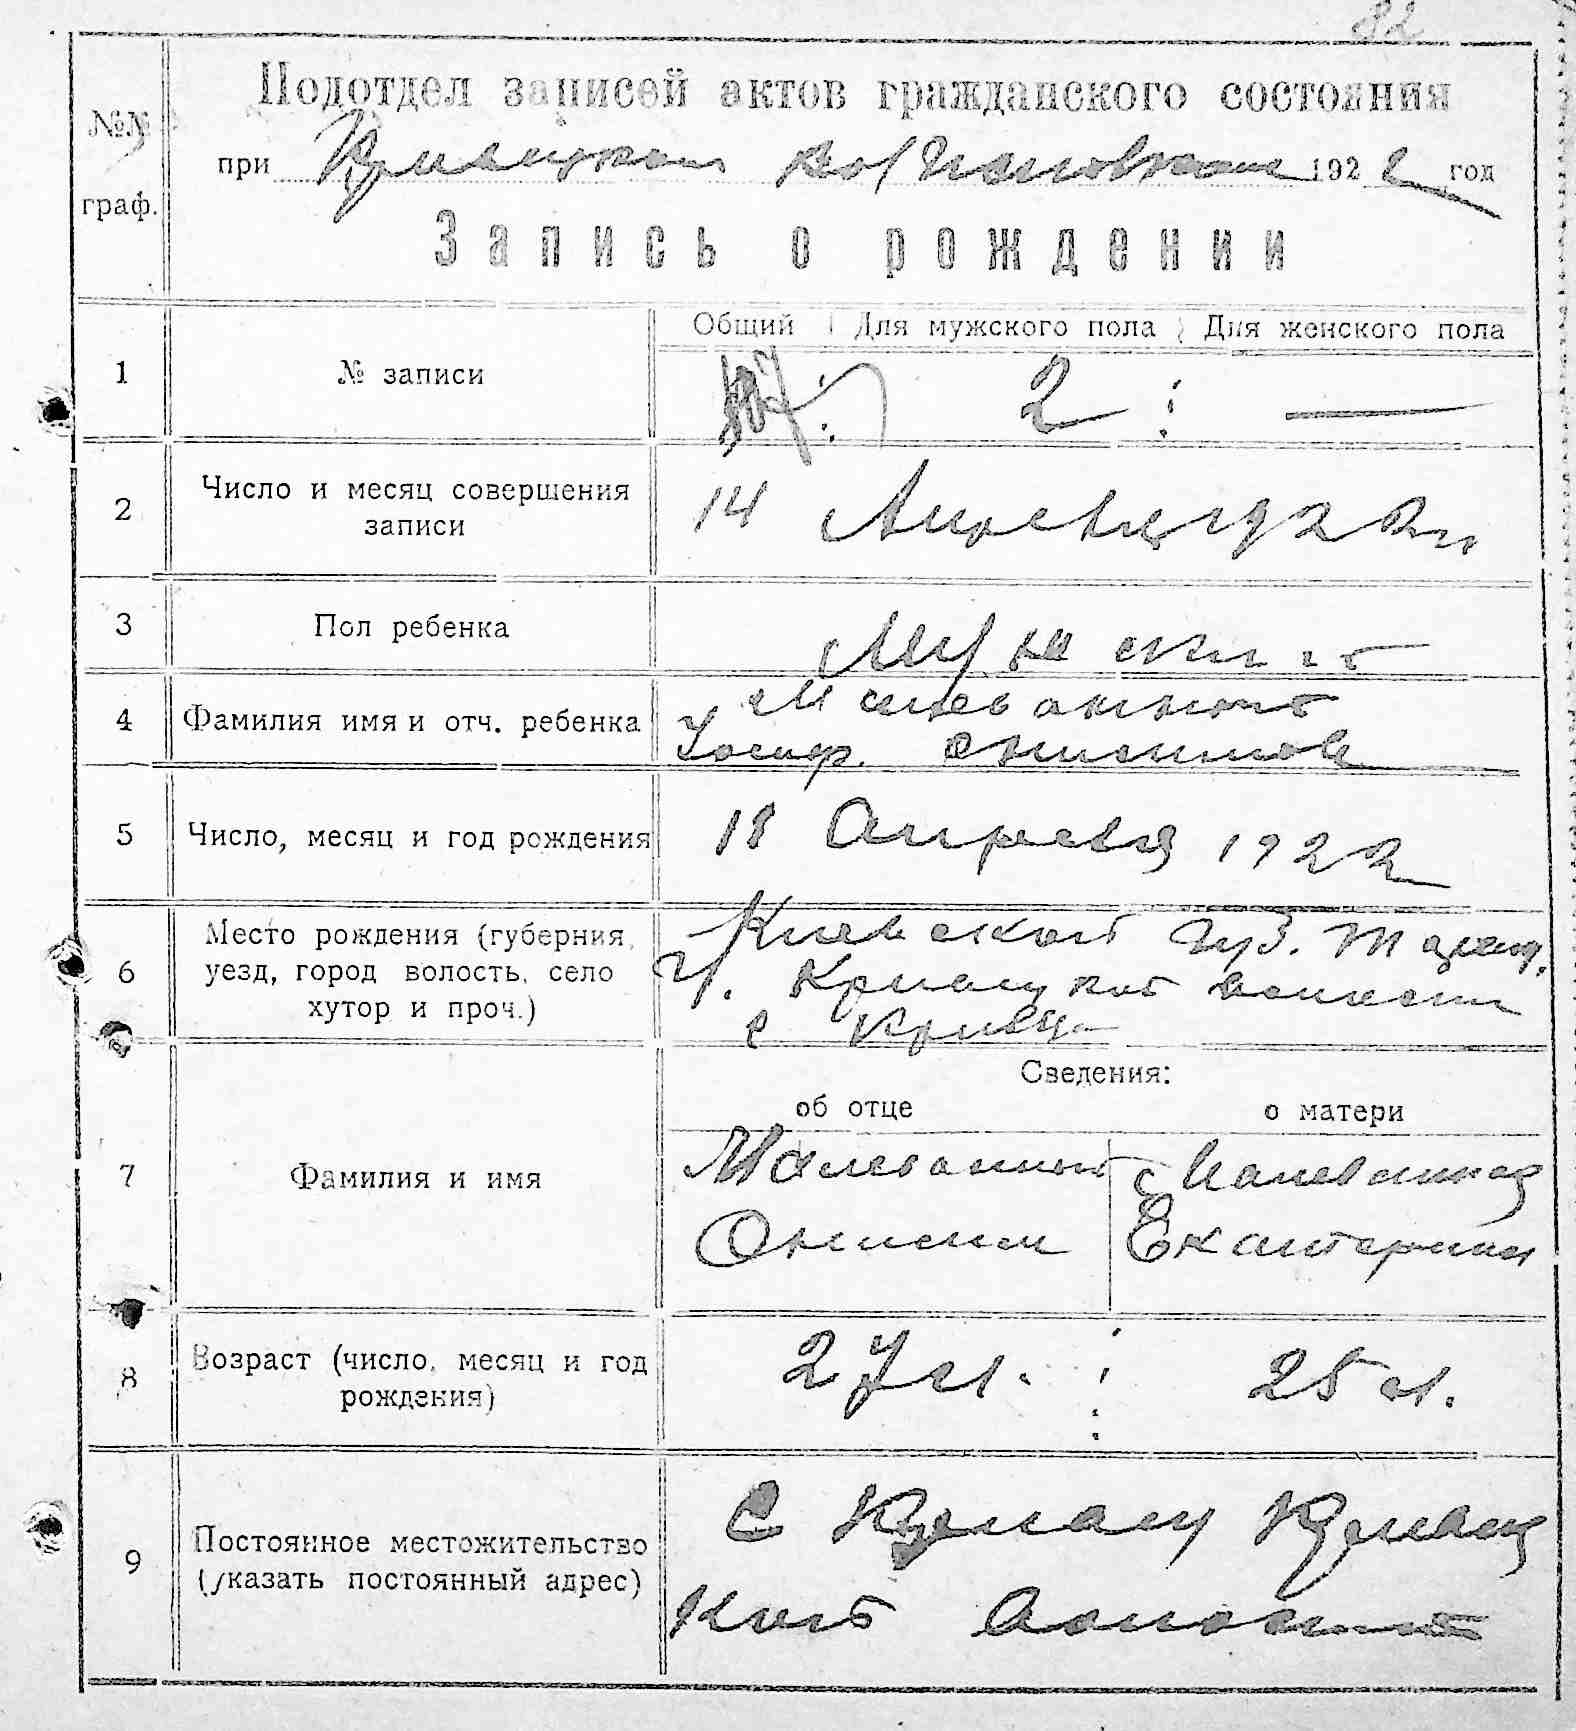 82
Подотдел записей актов гражданского состояния
№№ граф.
при Кривецком 1922 год
Запись о рождении
Общий Для мужского пола Для женского пола
1 № записи 2 —
2 Число и месяц совершения записи 14 Апреля 1922 г
3 Пол ребенка Мужской
4 Фамилия имя и отч. ребенка Малеванный
Иосиф Онисимов
5 Число, месяц и год рождения 18 Апреля 1922
6 Место рождения (губерния, Киевской губ. Таращ.
уезд, город волость, село у. Кривецкой волости
хутор и проч.) с Кривец
Сведения:
об отце о матери
7 Фамилия и имя Малеванный Малеванная
Онисим Екатерина
8 Возраст (число, месяц и год рождения) 27 л. 25 л.
9 Постоянное местожительство С Кривец Кривец
(указать постоянный адрес) кой Волости